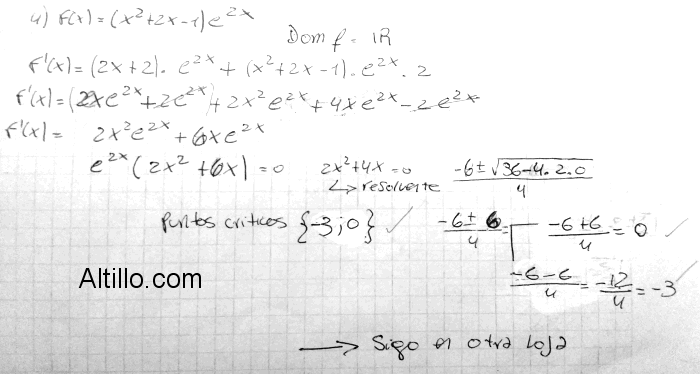 4) f(x) = (x²+2x-1)e^{2x}
Dom f = IR
f'(x) = (2x+2). e^{2x} + (x²+2x-1). e^{2x} . 2
f'(x) = (2xe^{2x}+2e^{2x}) + 2x²e^{2x} + 4xe^{2x} - 2e^{2x}
f'(x) = 2x²e^{2x} + 6xe^{2x}
e^{2x} (2x² + 6x) = 0 2x²+4x=0 (-6 ± √(36-4.2.0))/4
↳ resolvente
Puntos criticos {-3;0} ✓ (-6 ± 6)/4 = (-6+6)/4 = 0 ✓
(-6-6)/4 = -12/4 = -3 ✓
Altillo.com
→ Sigo en otra hoja